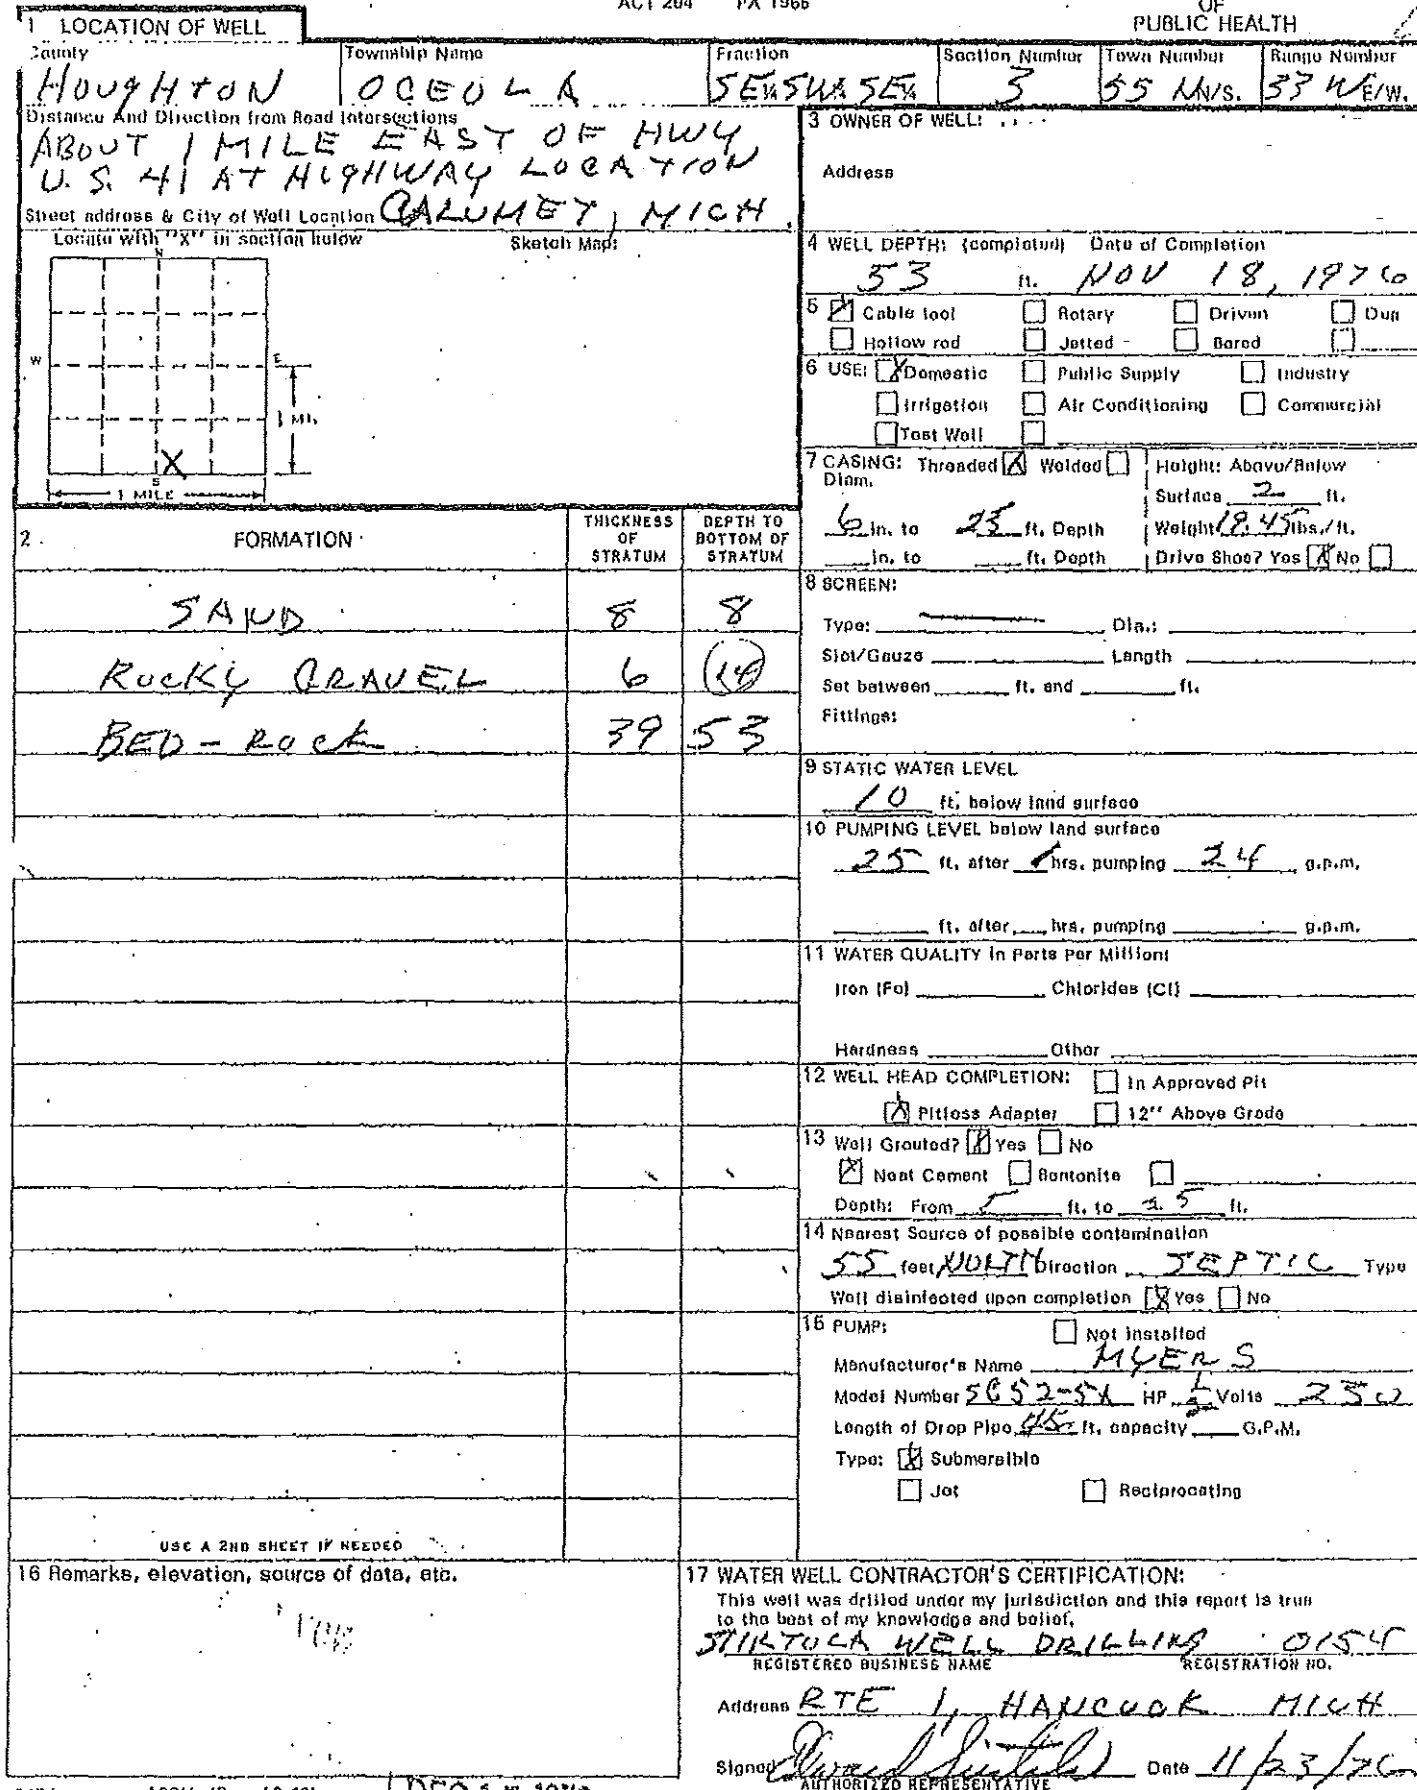 ACT 294 PA 1965
OF
PUBLIC HEALTH
1 LOCATION OF WELL
County
HOUGHTON
Township Name
OCEOLA
Fraction
SE¼ SW¼ SE¼
Section Number
3
Town Number
55 N/S.
Range Number
33 W E/W.
Distance And Direction from Road Intersections
ABOUT 1 MILE EAST OF HWY
U.S. 41 AT HIGHWAY LOCATION
Street address & City of Well Location CALUMET, MICH.
Locate with "X" in section below
Sketch Map:
N
W
E
½ MI.
X
S
1 MILE
3 OWNER OF WELL:
Address
4 WELL DEPTH: (completed) Date of Completion
53 ft. NOV 18, 1976
5 Cable tool Rotary Driven Dug
Hollow rod Jetted Bored
6 USE: Domestic Public Supply Industry
Irrigation Air Conditioning Commercial
Test Well
7 CASING: Threaded Welded
Diam.
6 in. to 25 ft. Depth
in. to ft. Depth
Height: Above/Below
Surface 2 ft.
Weight 19.45 lbs./ft.
Drive Shoe? Yes No
2. FORMATION
THICKNESS OF STRATUM
DEPTH TO BOTTOM OF STRATUM
SAND 8 8
ROCKY GRAVEL 6 14
BED-ROCK 39 53
USE A 2ND SHEET IF NEEDED
8 SCREEN:
Type: Dia.:
Slot/Gauze Length
Set between ft. and ft.
Fittings:
9 STATIC WATER LEVEL
10 ft. below land surface
10 PUMPING LEVEL below land surface
25 ft. after 1 hrs. pumping 24 g.p.m.
ft. after hrs. pumping g.p.m.
11 WATER QUALITY in Parts Per Million:
Iron (Fe) Chlorides (Cl)
Hardness Other
12 WELL HEAD COMPLETION: In Approved Pit
Pitless Adapter 12" Above Grade
13 Well Grouted? Yes No
Neat Cement Bentonite
Depth: From 5 ft. to 25 ft.
14 Nearest Source of possible contamination
55 feet NORTH Direction SEPTIC Type
Well disinfected upon completion Yes No
15 PUMP: Not installed
Manufacturer's Name MYERS
Model Number HP ½ Volts 230
Length of Drop Pipe 45 ft. capacity G.P.M.
Type: Submersible
Jet Reciprocating
16 Remarks, elevation, source of data, etc.
17 WATER WELL CONTRACTOR'S CERTIFICATION:
This well was drilled under my jurisdiction and this report is true
to the best of my knowledge and belief.
WELL DRILLING 0154
REGISTERED BUSINESS NAME REGISTRATION NO.
Address RTE 1, HANCOCK MICH
Signed Date 11/23/76
AUTHORIZED REPRESENTATIVE